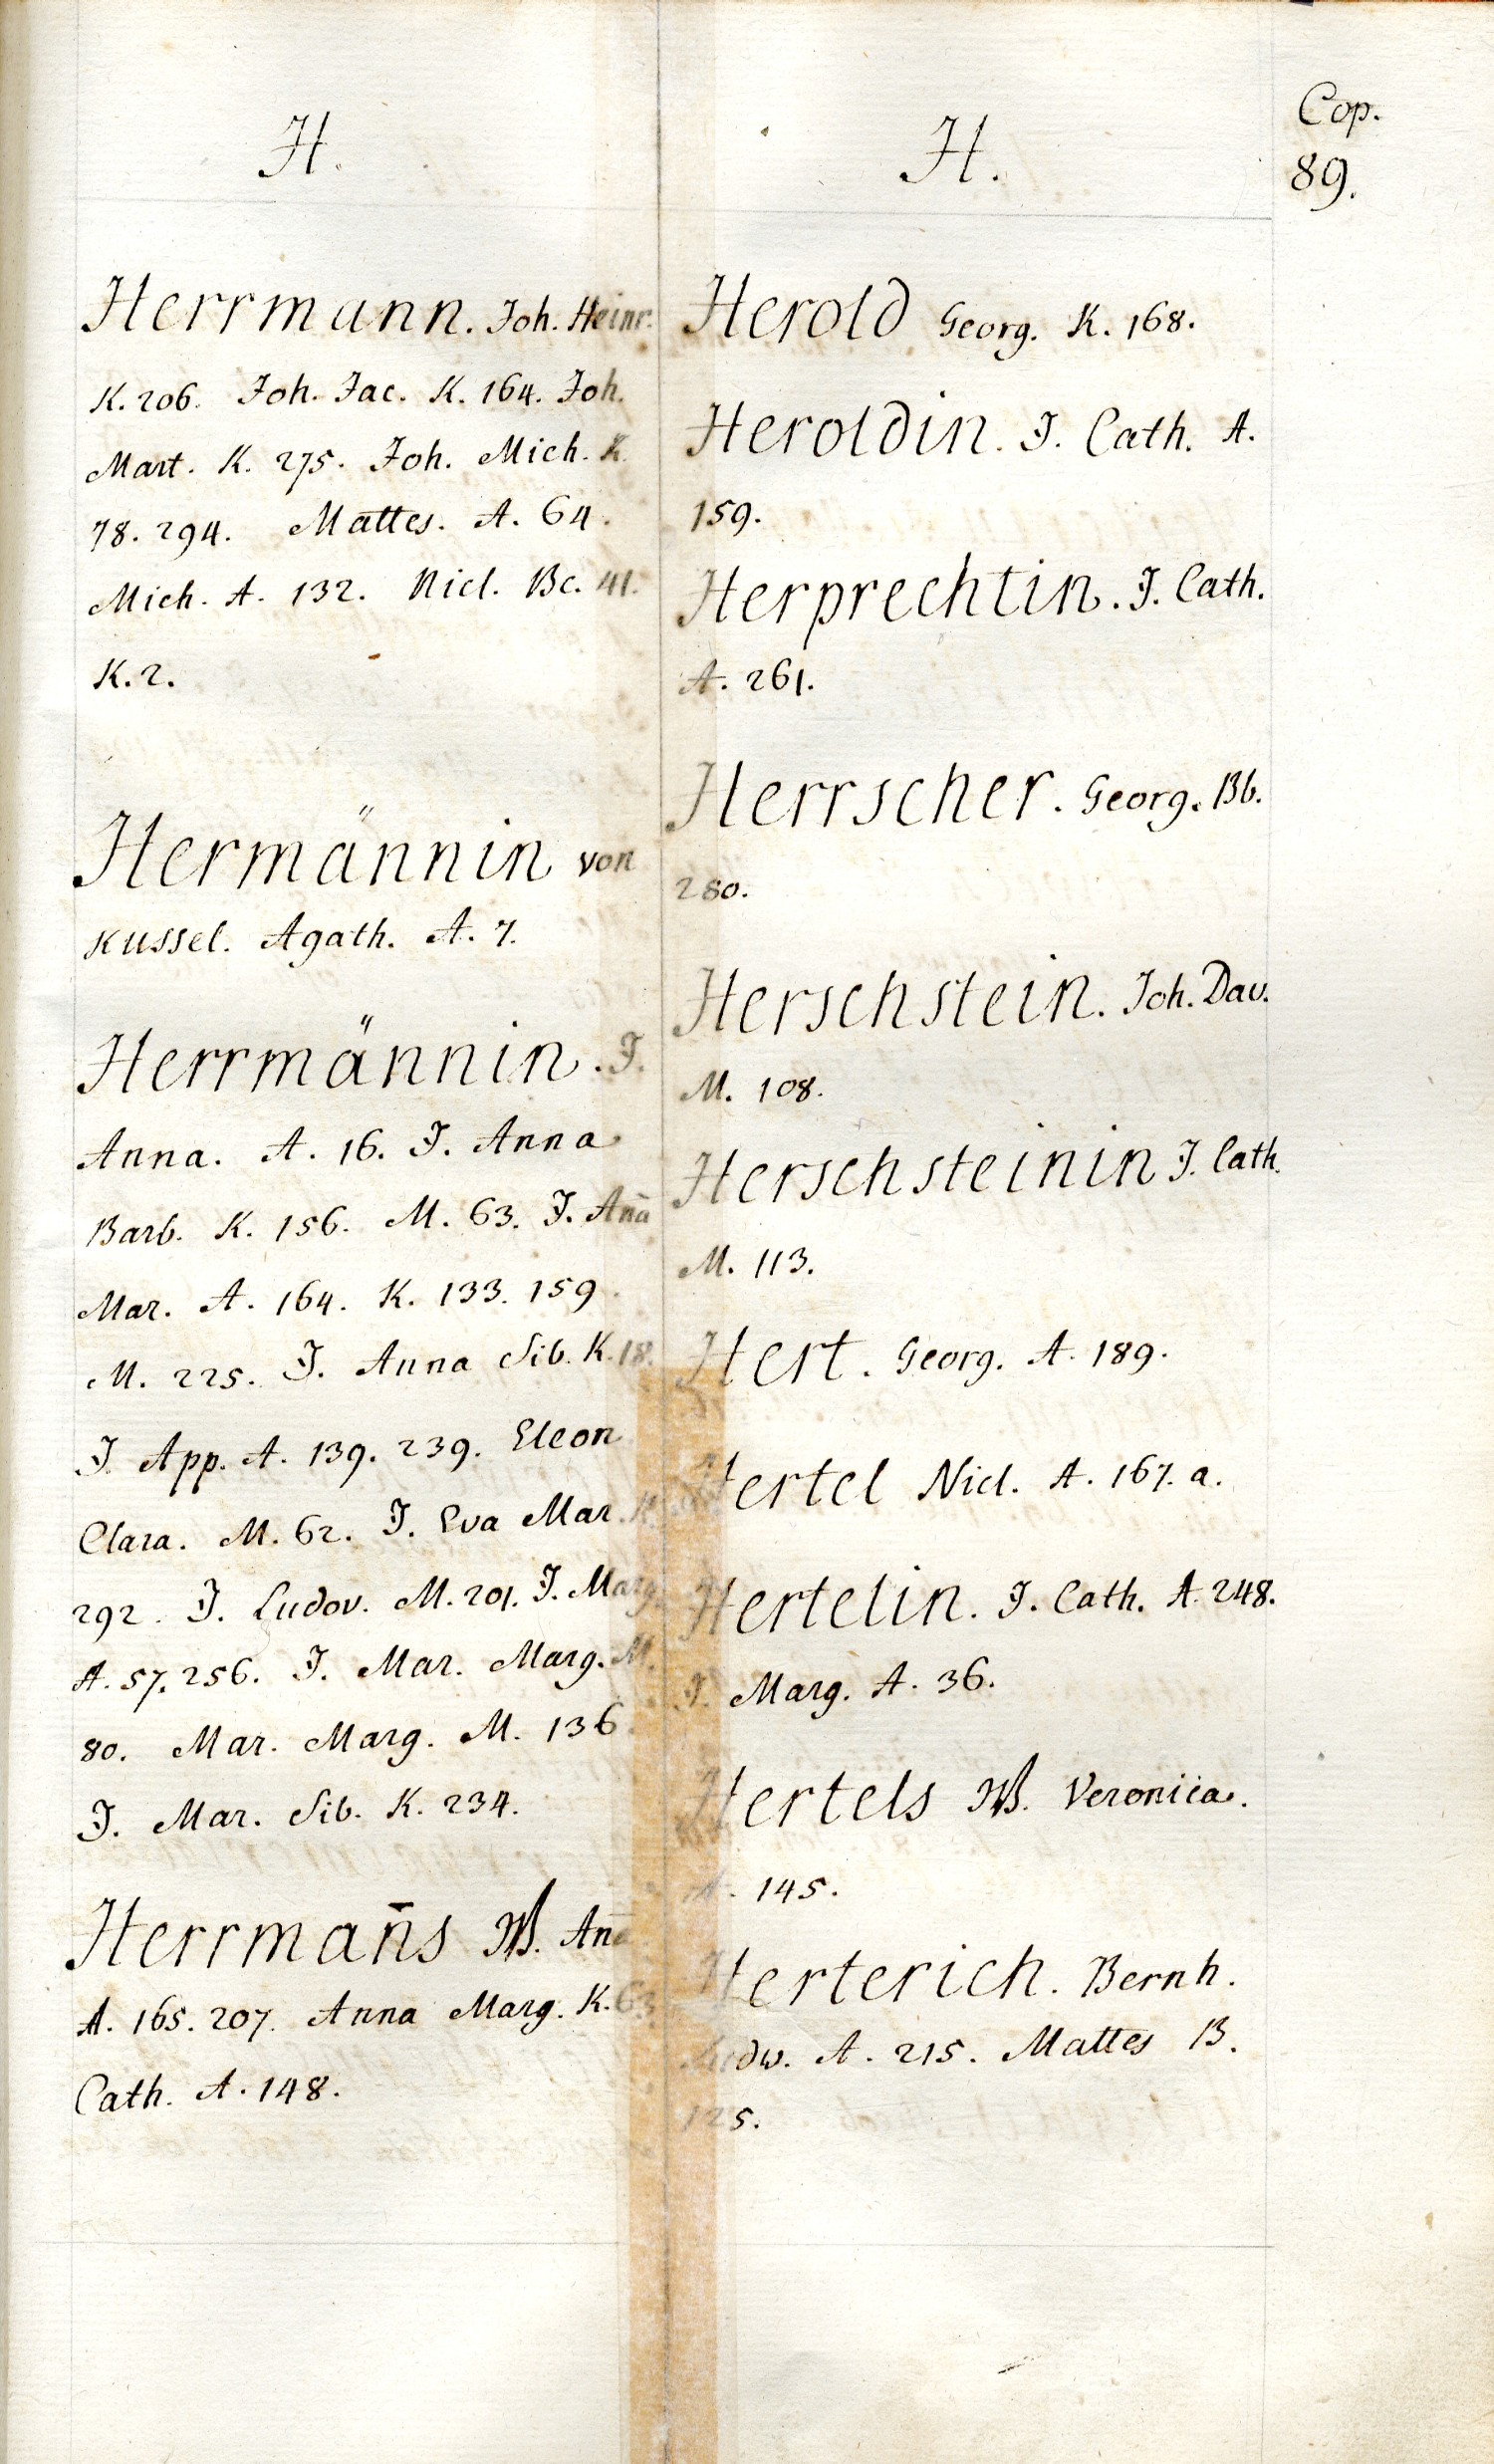 Cop.
89.
H.
Herrmann. Joh. Heinr.
K. 206. Joh. Jac. K. 164. Joh.
Mart. K. 275. Joh. Mich. K.
78. 294. Mattes. A. 64.
Mich. A. 132. Nicl. Bc. 41.
K. 2.
Hermännin von
Kussel. Agath. A. 7.
Herrmännin. J.
Anna. A. 16. J. Anna
Barb. K. 156. M. 63. J. Anā
Mar. A. 164. K. 133. 159.
M. 225. J. Anna Sib. K. 18.
J. App. A. 139. 239. Eleon
Clara. M. 62. J. Eva Mar. K.
292. J. Ludov. M. 201. J. Marg.
A. 57. 256. J. Mar. Marg. M.
80. Mar. Marg. M. 136.
J. Mar. Sib. K. 234.
Herrman̄s W. Ana
A. 165. 207. Anna Marg. K.
Cath. A. 148.
H.
Herold Georg. K. 168.
Heroldin. J. Cath. A.
159.
Herprechtin. J. Cath.
A. 261.
Herrscher. Georg. Bb.
280.
Herschstein. Joh. Dav.
M. 108.
Herschsteinin J. Cath.
M. 113.
Hert. Georg. A. 189.
Hertel Nicl. A. 167. a.
Hertelin. J. Cath. A. 248.
J. Marg. A. 36.
Hertels W. Veronica.
A. 145.
Herterich. Bernh.
Ludw. A. 215. Mattes B.
125.